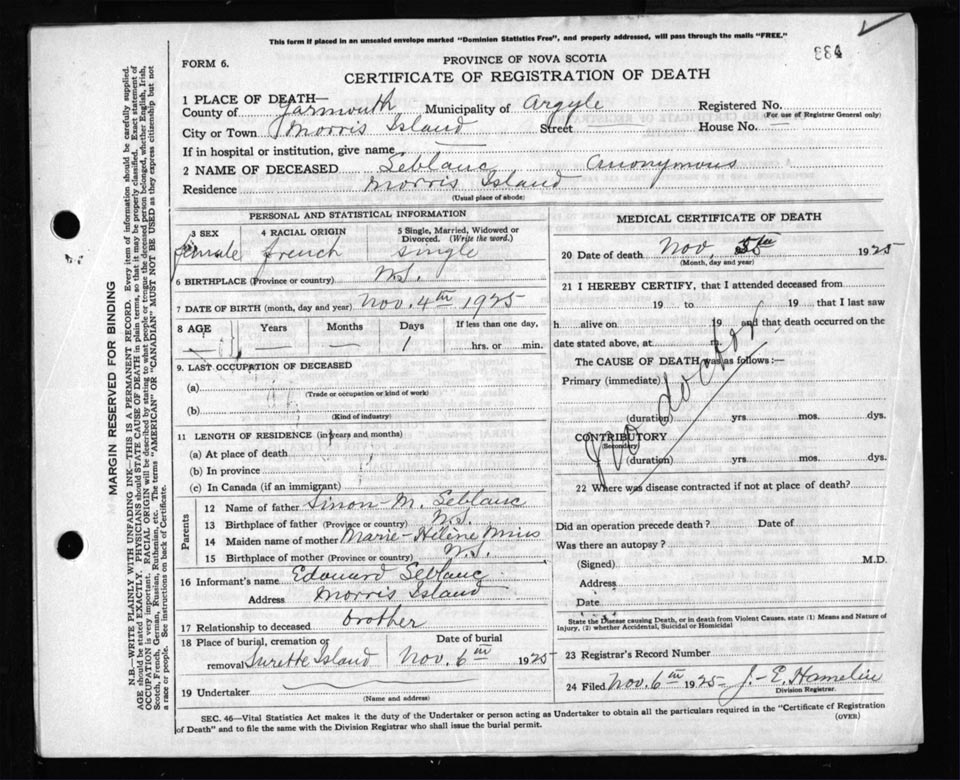 This form if placed in an unsealed envelope marked "Dominion Statistics Free", and properly addressed, will pass through the mails "FREE."
884
FORM 6.
PROVINCE OF NOVA SCOTIA
CERTIFICATE OF REGISTRATION OF DEATH
1 PLACE OF DEATH—
County of Yarmouth Municipality of Argyle Registered No.
(For use of Registrar General only)
City or Town Morris Island Street — House No. —
If in hospital or institution, give name —
2 NAME OF DECEASED Leblanc Anonymous
Residence Morris Island
(Usual place of abode)
PERSONAL AND STATISTICAL INFORMATION
3 SEX 4 RACIAL ORIGIN 5 Single, Married, Widowed or Divorced. (Write the word.)
female french single
6 BIRTHPLACE (Province or country) N.S.
7 DATE OF BIRTH (month, day and year) Nov. 4th 1925
8 AGE Years Months Days If less than one day,
— — 1 hrs. or min.
9. LAST OCCUPATION OF DECEASED
(a)
(Trade or occupation or kind of work)
(b)
(Kind of industry)
11 LENGTH OF RESIDENCE (in years and months)
(a) At place of death
(b) In province
(c) In Canada (if an immigrant)
Parents
12 Name of father Simon-M. Leblanc
13 Birthplace of father (Province or country) N.S.
14 Maiden name of mother Marie-Hélène Mius
15 Birthplace of mother (Province or country) N.S.
16 Informant's name Edouard Leblanc
Address Morris Island
17 Relationship to deceased brother
18 Place of burial, cremation or removal Surette Island
Date of burial Nov. 6th 1925
19 Undertaker
(Name and address)
MEDICAL CERTIFICATE OF DEATH
20 Date of death Nov. 5th 1925
(Month, day and year)
21 I HEREBY CERTIFY, that I attended deceased from
19 to 19 that I last saw
h alive on 19 and that death occurred on the
date stated above, at
The CAUSE OF DEATH was as follows:—
Primary (immediate)
(duration) yrs. mos. dys.
CONTRIBUTORY
(Secondary)
(duration) yrs. mos. dys.
No doctor
22 Where was disease contracted if not at place of death?
Did an operation precede death? Date of
Was there an autopsy?
(Signed) M.D.
Address
Date
State the Disease causing Death, or in death from Violent Causes, state (1) Means and Nature of
Injury, (2) whether Accidental, Suicidal or Homicidal
23 Registrar's Record Number
24 Filed Nov. 6th 1925 J.-E. Hamelin
Division Registrar.
SEC. 46—Vital Statistics Act makes it the duty of the Undertaker or person acting as Undertaker to obtain all the particulars required in the "Certificate of Registration
of Death" and to file the same with the Division Registrar who shall issue the burial permit.
(OVER)
MARGIN RESERVED FOR BINDING
N.B.—WRITE PLAINLY WITH UNFADING INK—THIS IS A PERMANENT RECORD. Every item of information should be carefully supplied.
AGE should be stated EXACTLY. PHYSICIANS should STATE CAUSE OF DEATH in plain terms, so that it may be properly classified. Exact statement of
OCCUPATION is very important. RACIAL ORIGIN will be described by stating to what people or tongue the deceased person belonged, whether English, Irish,
Scotch, French, German, Russian, Ruthenian, etc. The terms "AMERICAN" OR "CANADIAN" MUST NOT BE USED as they express citizenship but not
a race or people. See instructions on back of Certificate.